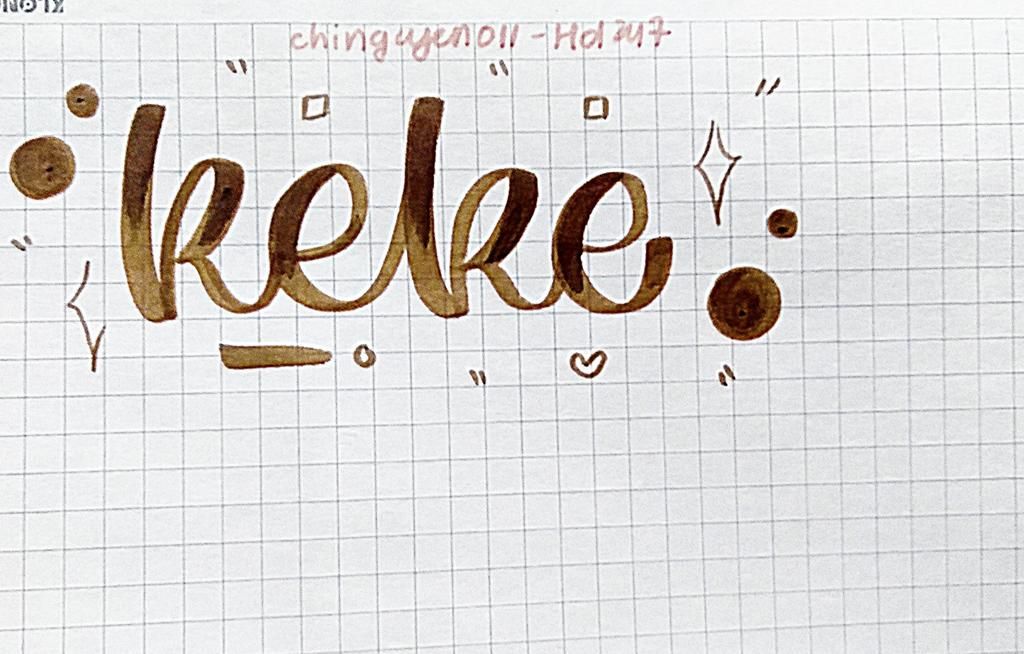 chinguyen011 - Hd247
keke